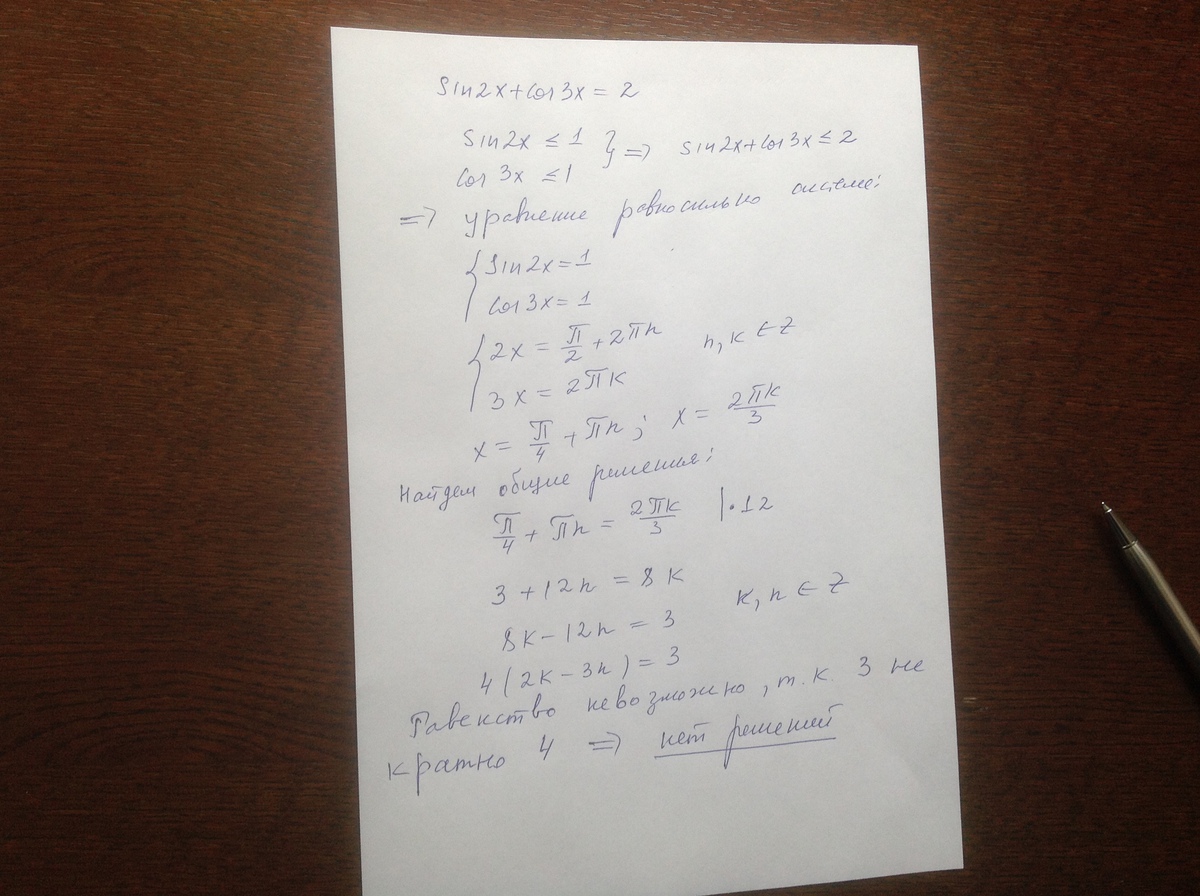 sin2x+cos3x = 2
sin2x ≤ 1 } => sin2x+cos3x ≤ 2
cos 3x ≤ 1
=> уравнение равносильно системе:
{ sin2x = 1
cos3x = 1
{ 2x = π/2 + 2πn n, k ∈ Z
3x = 2πk
x = π/4 + πn ; x = 2πk/3
Найдем общие решения:
π/4 + πn = 2πk/3 |·12
3 + 12n = 8k
8k − 12n = 3 k, n ∈ Z
4(2k − 3n) = 3
Равенство невозможно, т.к. 3 не
кратно 4 => нет решений